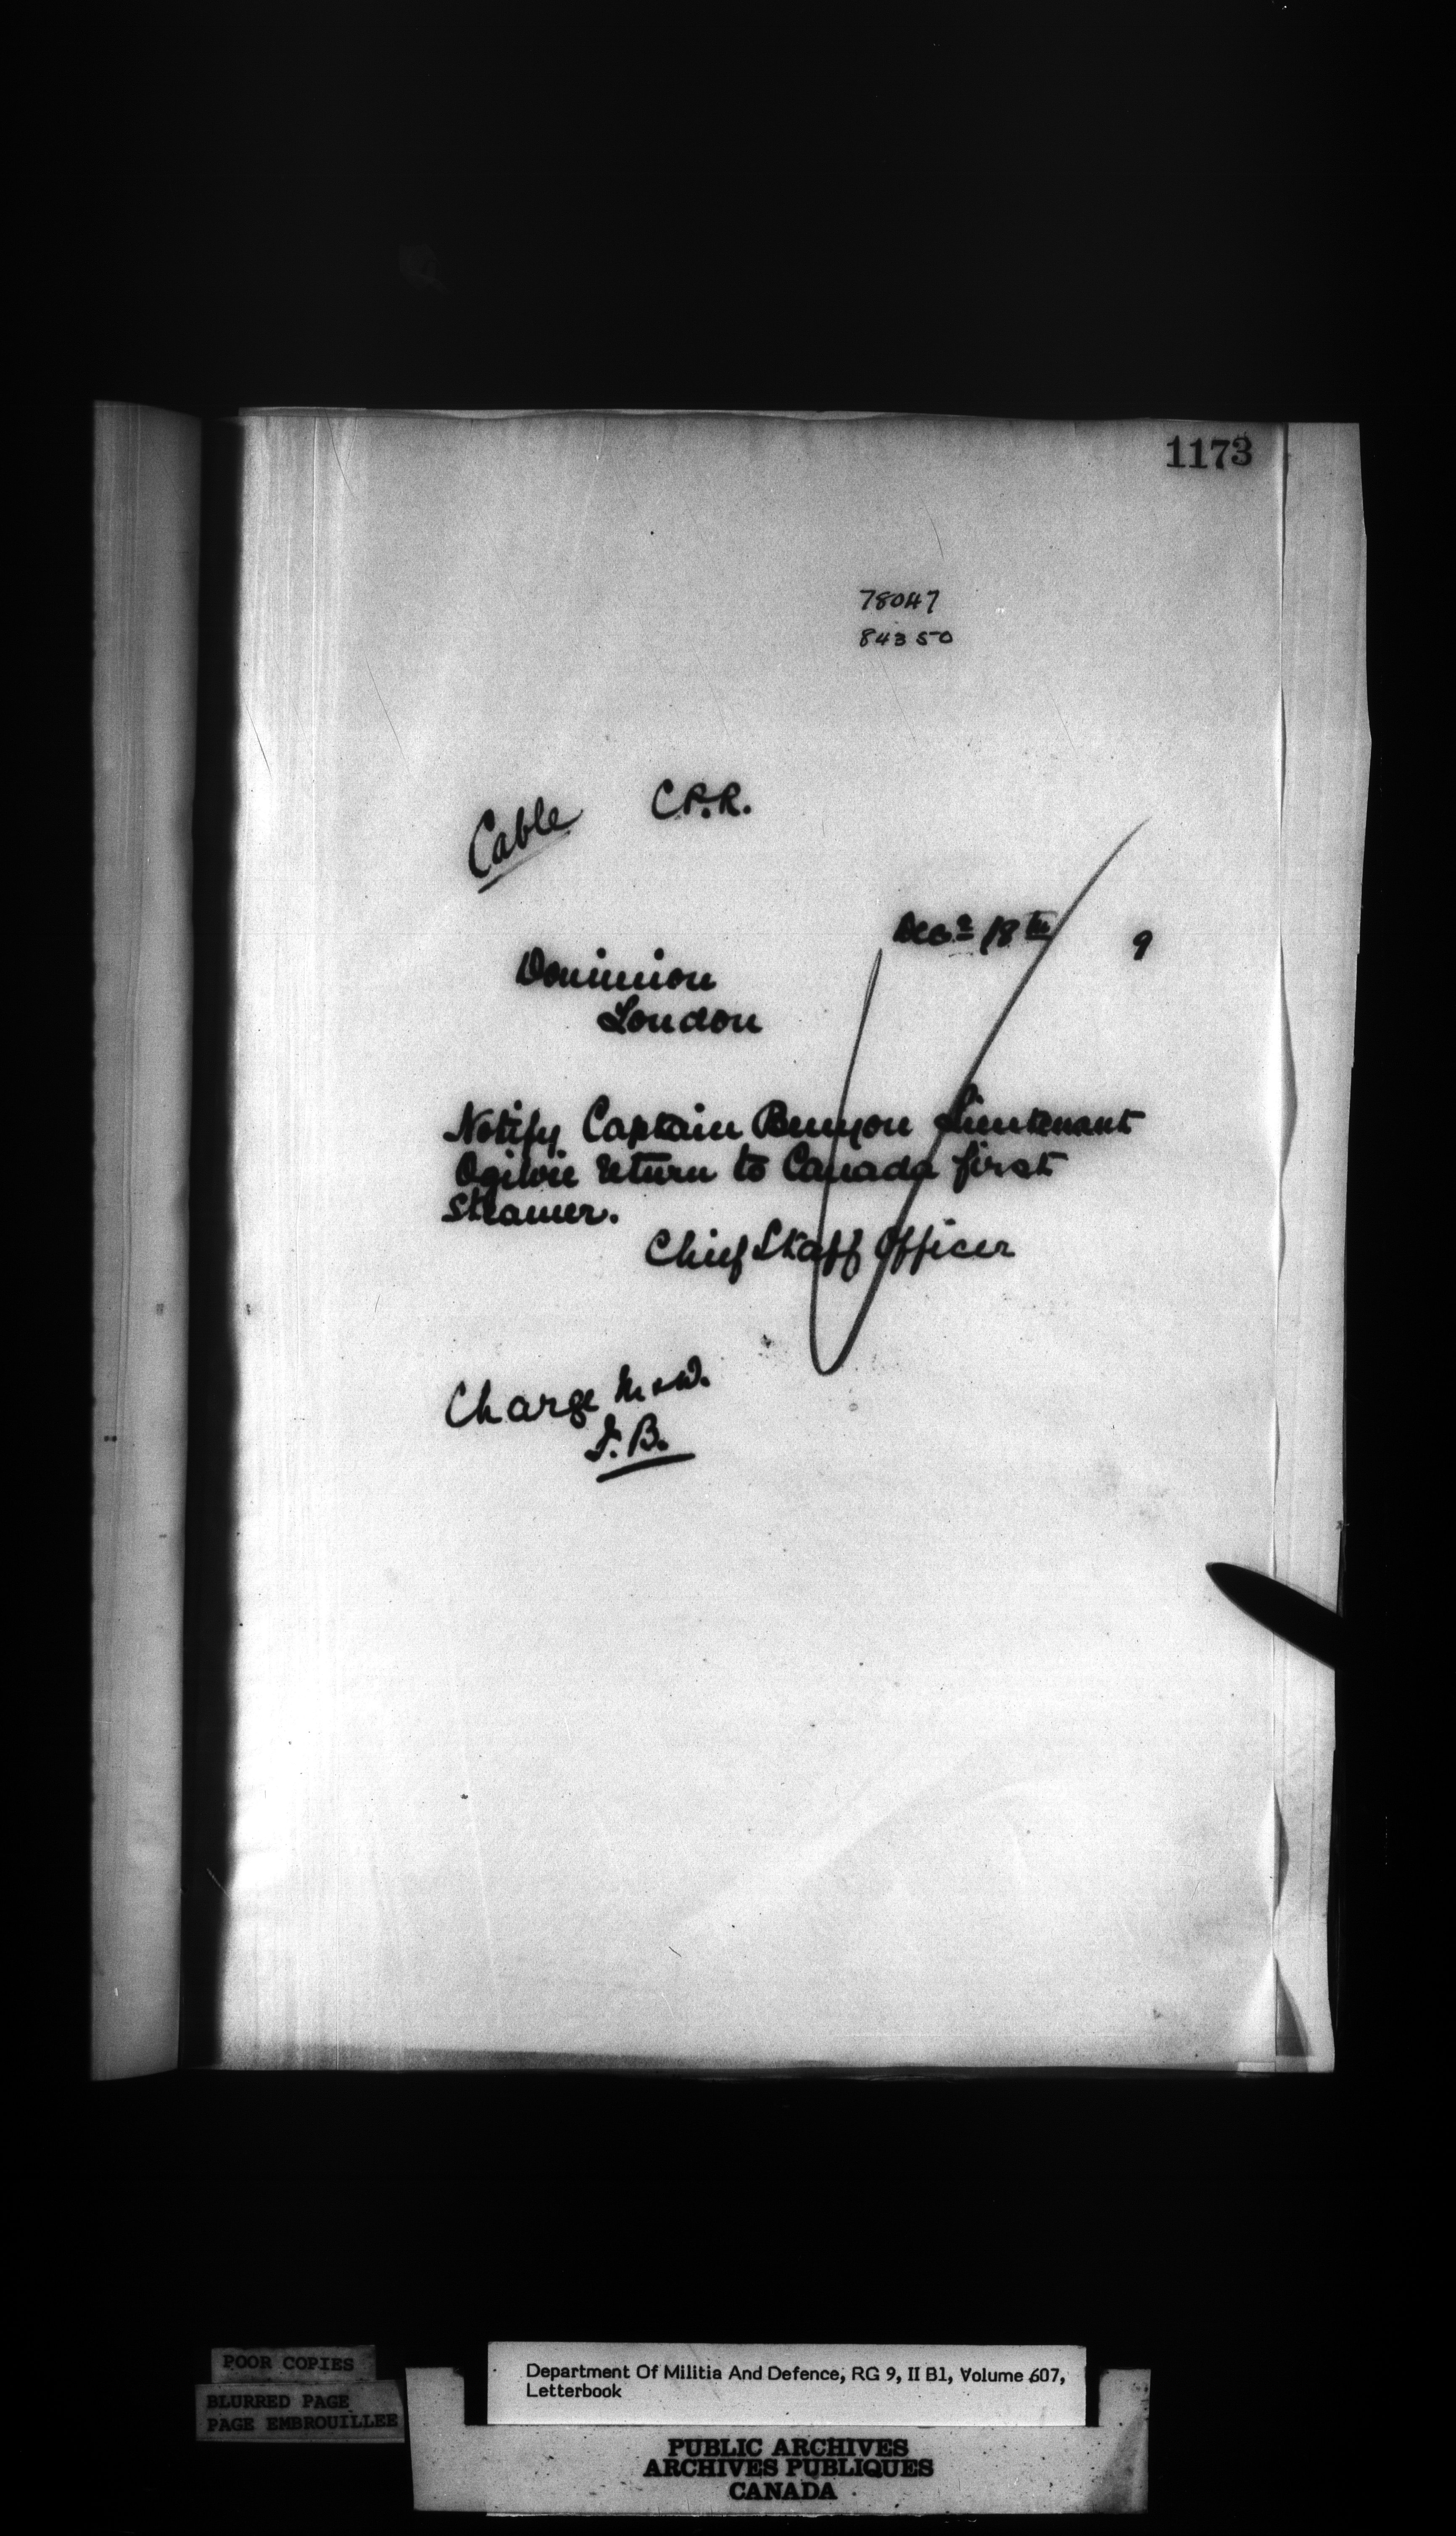 1173
78047
84350
Cable C.P.R.
Decr 18th 9
Dominion
London
Notify Captain Benyon Lieutenant
Ogilvie return to Canada first
steamer.
Chief Staff Officer
Charge M & D.
F.B.
POOR COPIES
BLURRED PAGE
PAGE EMBROUILLEE
Department Of Militia And Defence, RG 9, II B1, Volume 607,
Letterbook
PUBLIC ARCHIVES
ARCHIVES PUBLIQUES
CANADA